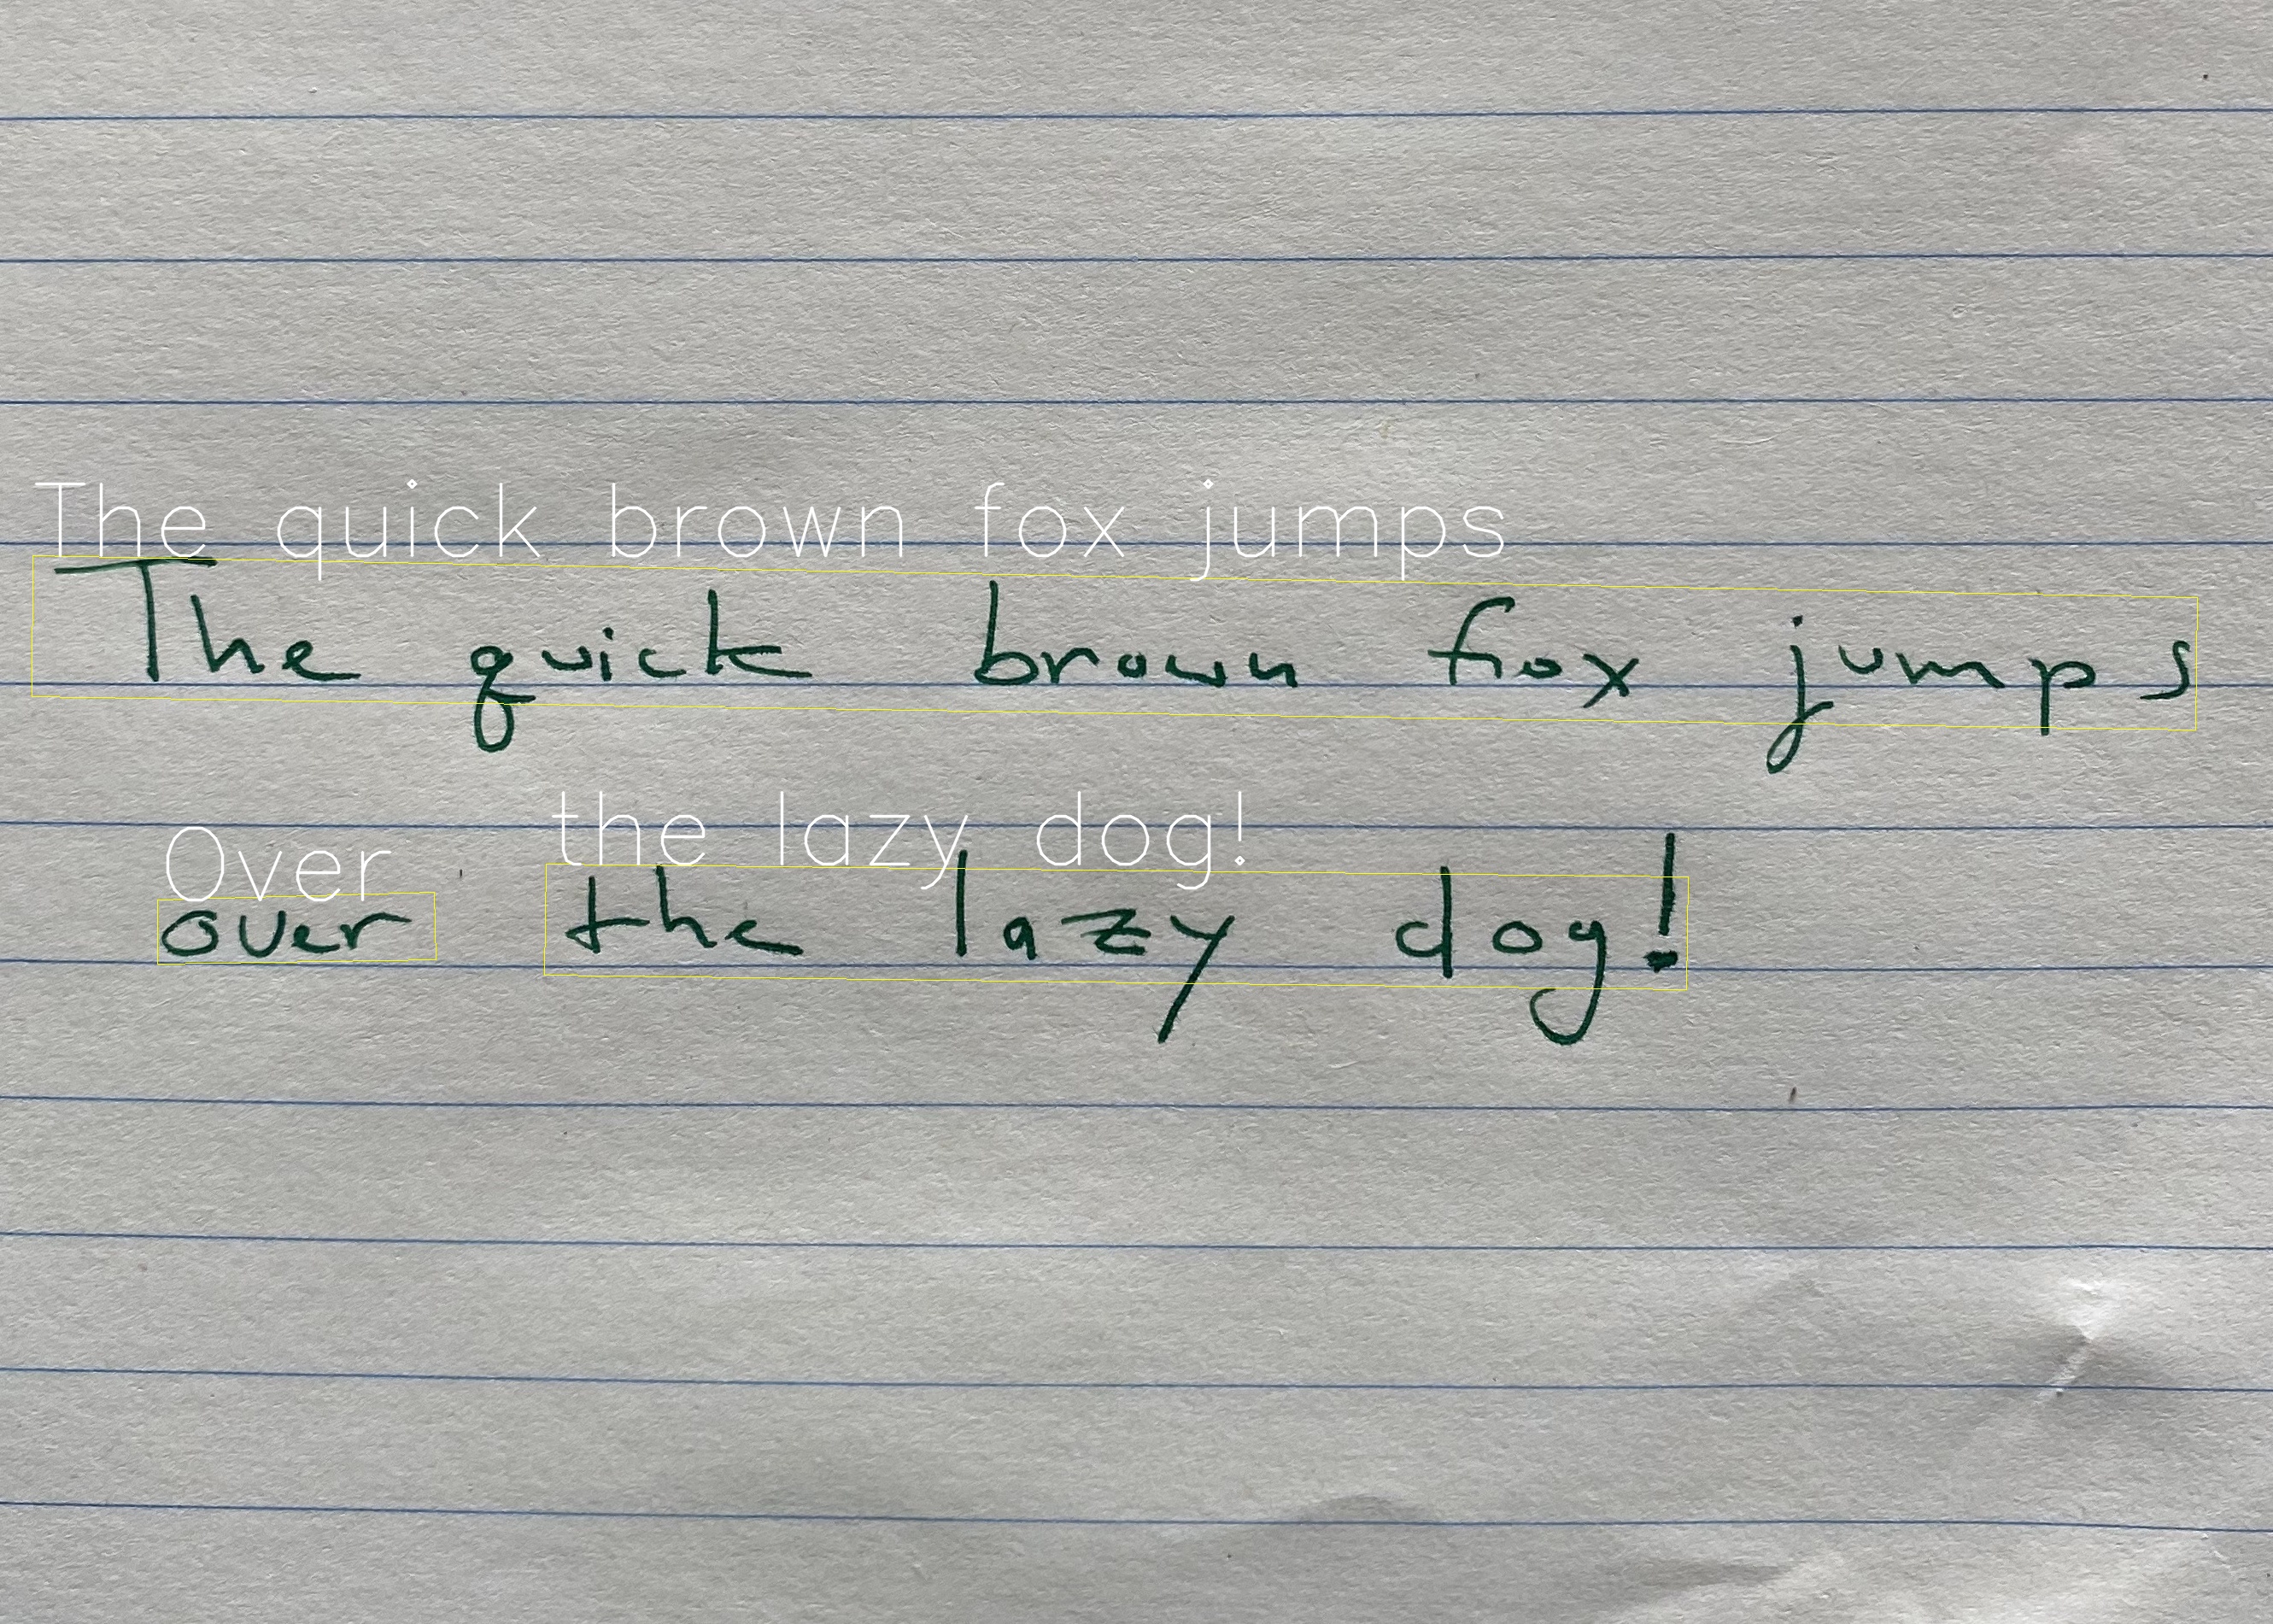 The quick brown fox jumps
The quick brown fox jumps
Over the lazy dog!
over the lazy dog!